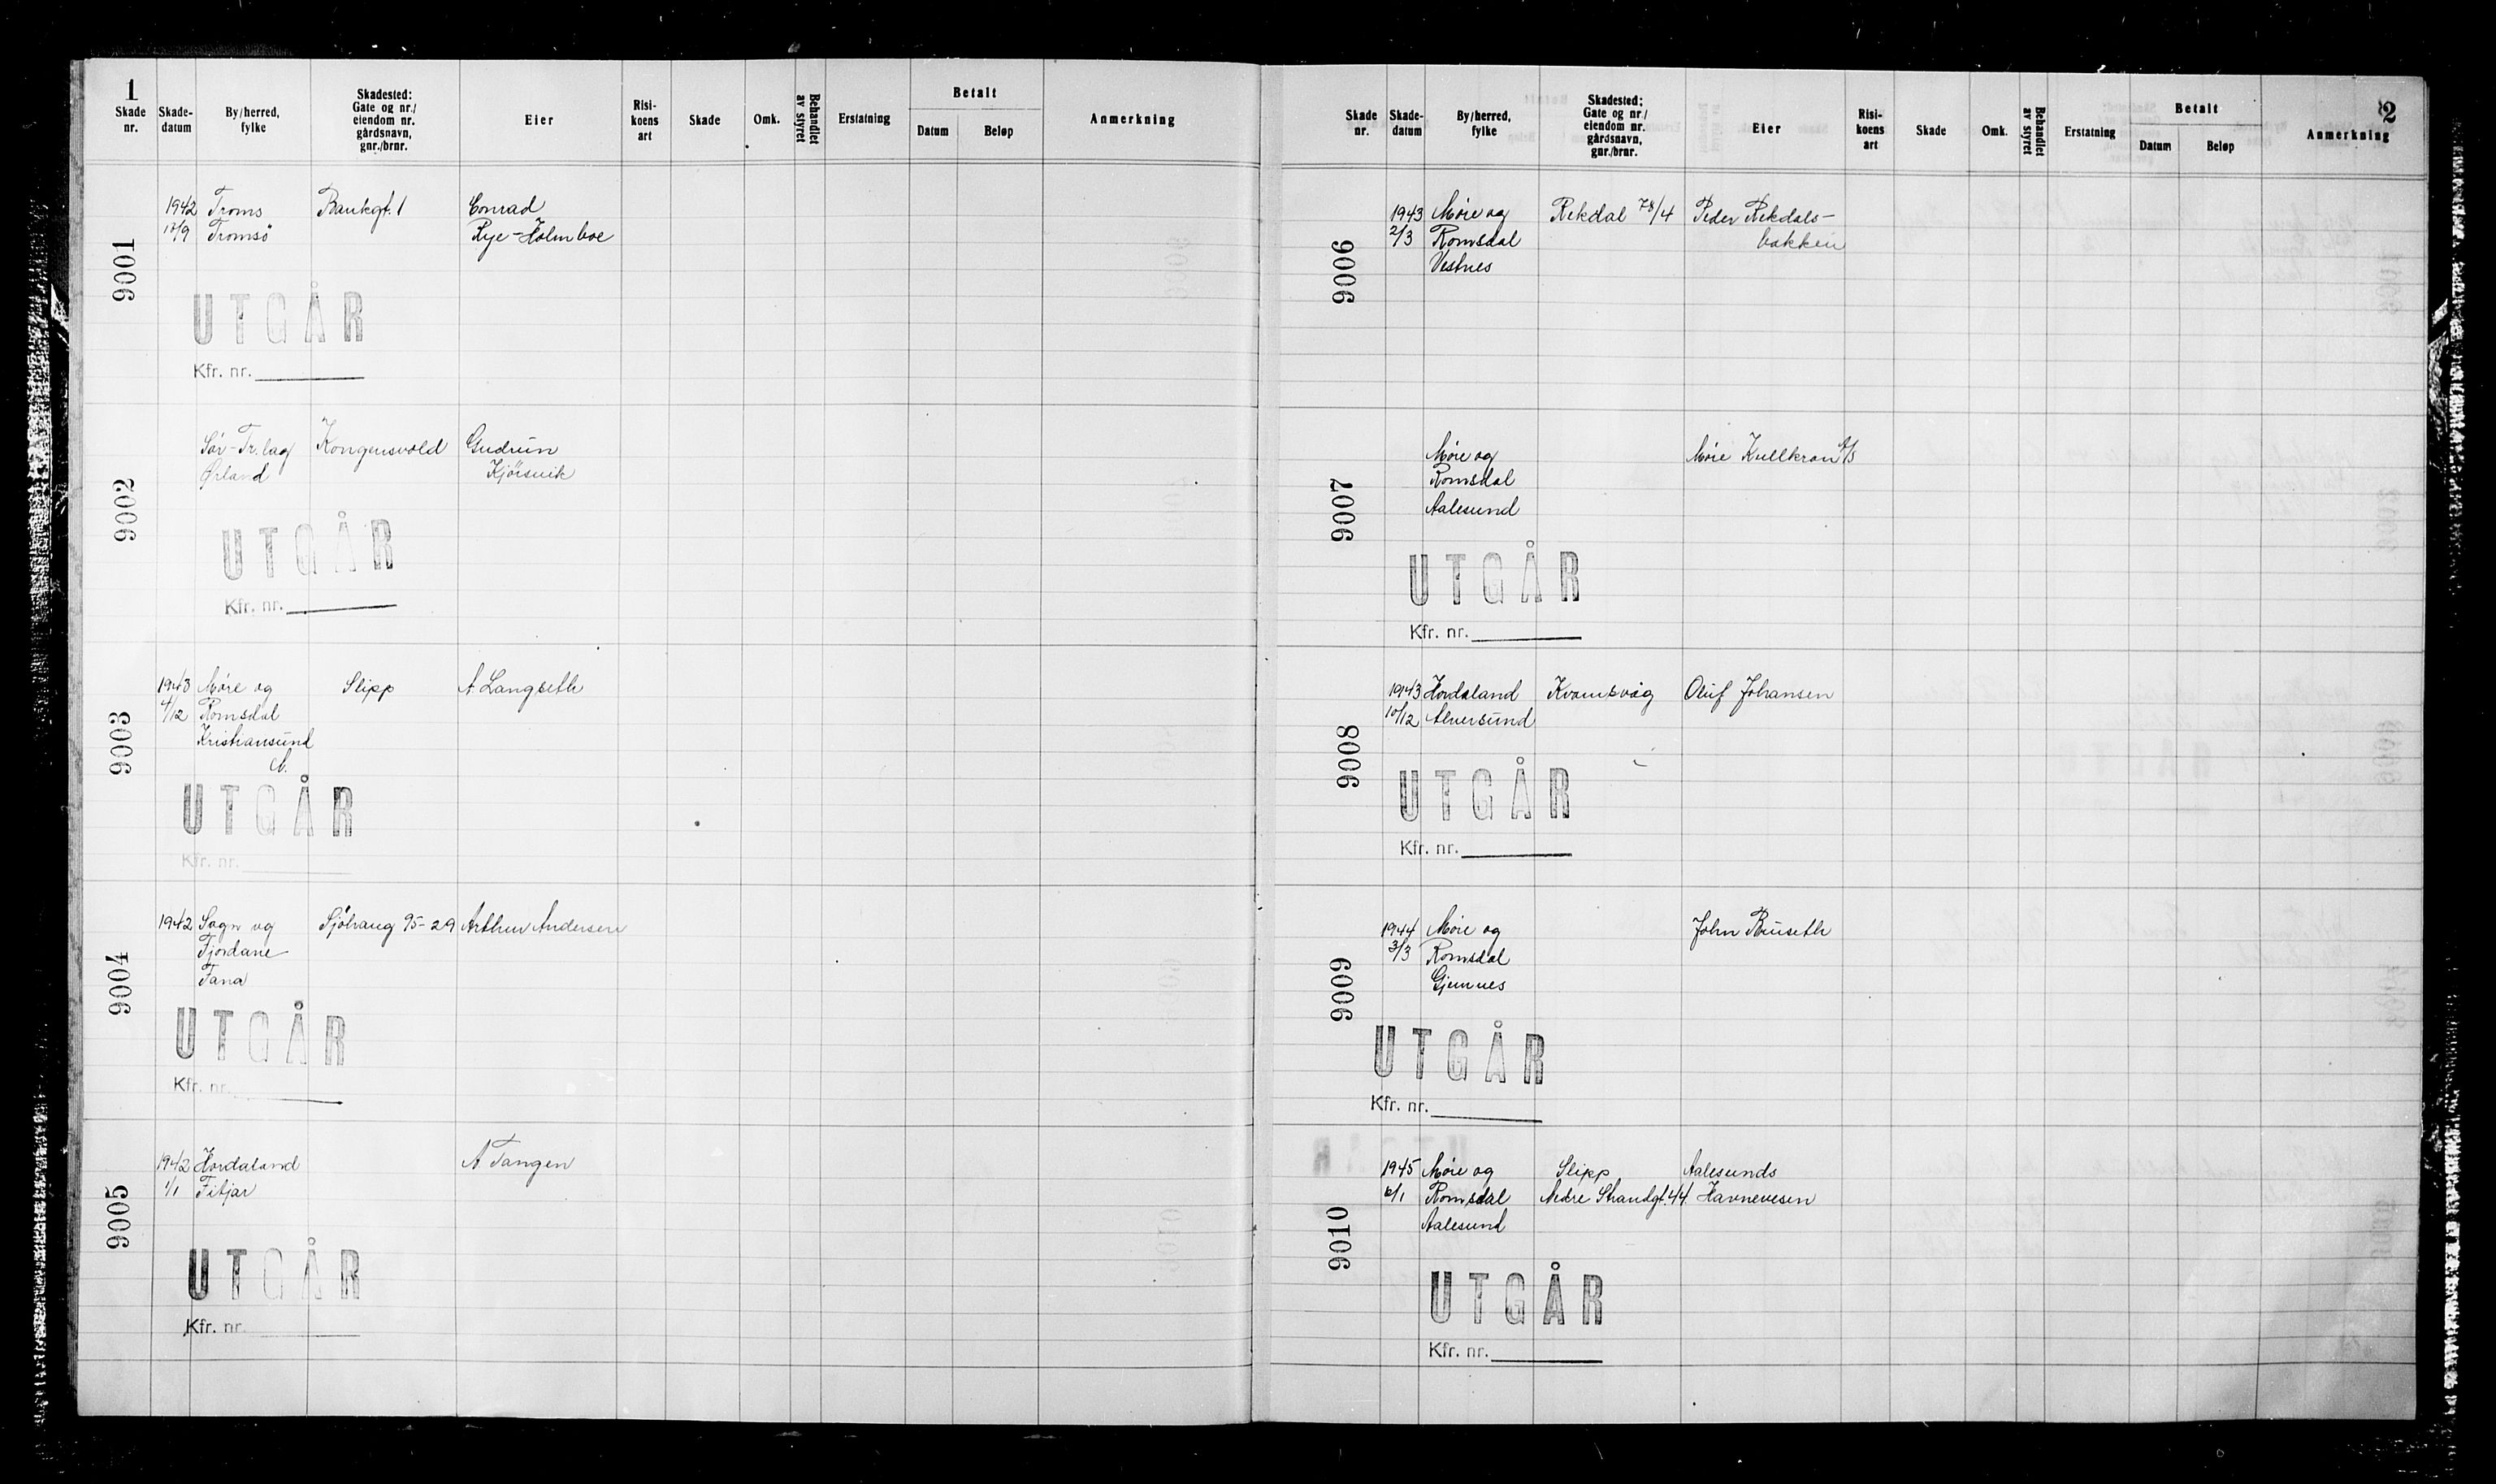 1
Skade nr.
Skade-datum
By/herred, fylke
Skadested: Gate og nr./ eiendom nr. gårdsnavn, gnr./brnr.
Eier
Risi-koens art
Skade
Omk.
Behandlet av styret
Erstatning
Betalt
Datum
Beløp
Anmerkning
9001
1942 Troms Bankgt. 1 Conrad
10/9 Tromsö Rye-Holmboe
UTGÅR
Kfr. nr.
9002
Sör-Tr.lag Kongensvold Gudrun
Ørland Kjörsvik
UTGÅR
Kfr. nr.
9003
1943 Møre og Slipp A. Langseth
4/12 Romsdal
Kristiansund
N.
UTGÅR
Kfr. nr.
9004
1942 Sogn og Sjöhaug 95-29 Arthur Andersen
Fjordane
Fana
UTGÅR
Kfr. nr.
9005
1942 Hordaland A. Tangen
1/1 Fitjar
UTGÅR
Kfr. nr.
2
Skade nr.
Skade-datum
By/herred, fylke
Skadested: Gate og nr./ eiendom nr. gårdsnavn, gnr./brnr.
Eier
Risi-koens art
Skade
Omk.
Behandlet av styret
Erstatning
Betalt
Datum
Beløp
Anmerkning
9006
1943 Møre og Rekdal 78/4 Peder Rekdals-
2/3 Romsdal bakken
Vestnes
9007
Møre og Møre Kullkran A/S
Romsdal
Aalesund
UTGÅR
Kfr. nr.
9008
1943 Hordaland Kvamsvåg Oluf Johansen
10/12 Alversund
UTGÅR
Kfr. nr.
9009
1944 Møre og John Buseth
3/3 Romsdal
Gjemnes
UTGÅR
Kfr. nr.
9010
1945 Møre og Slipp Aalesunds
6/1 Romsdal Nedre Strandgt. 44 Havnevesen
Aalesund
UTGÅR
Kfr. nr.